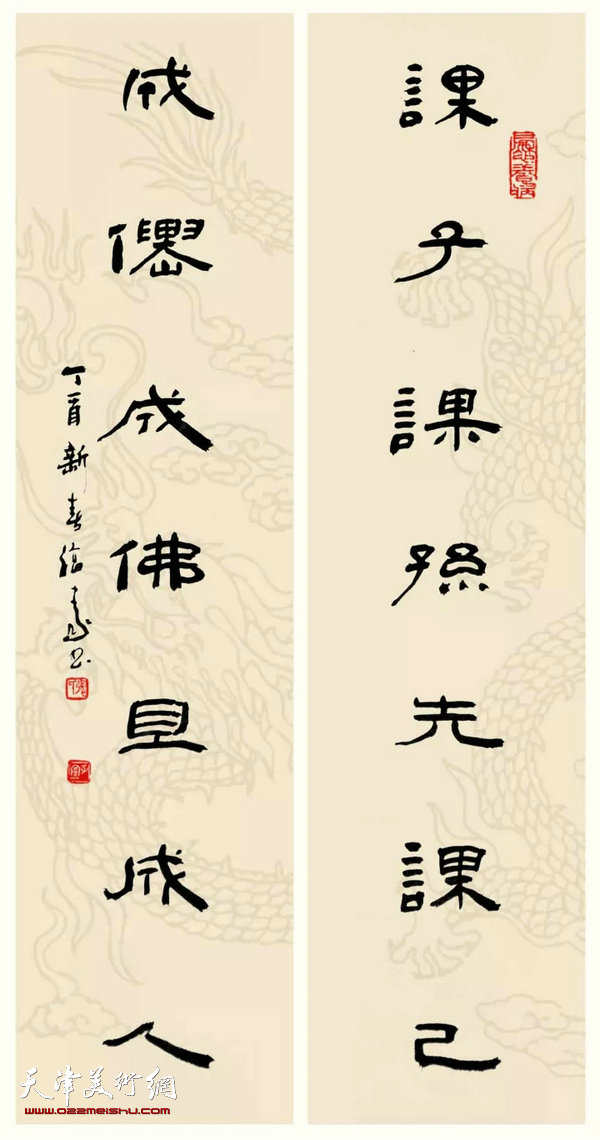 課子課孫先課己
成僊成佛且成人
丁酉新春
天津美術網
www.022meishu.com